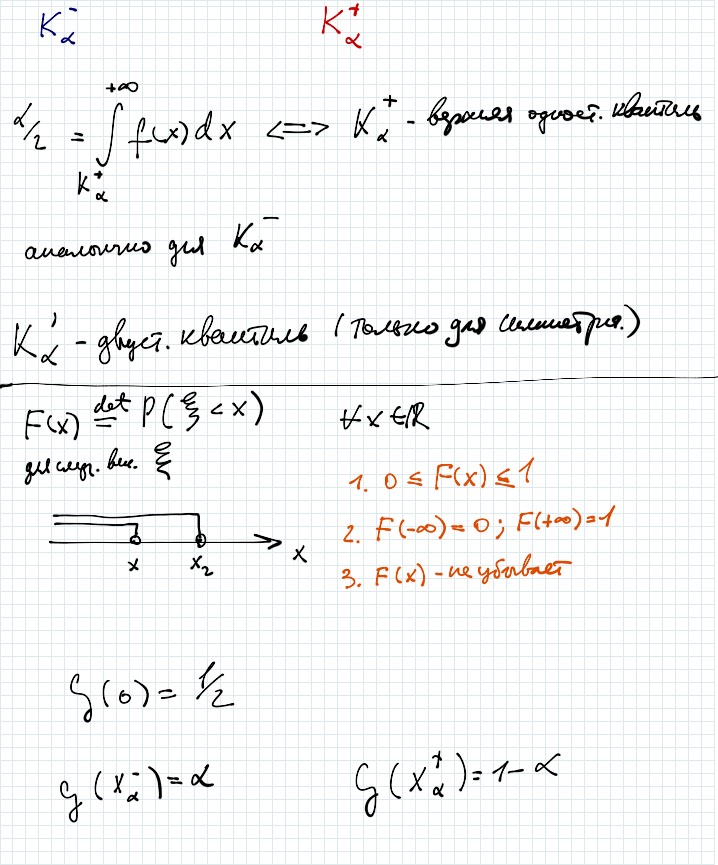 K_α^- K_α^+
α/2 = ∫_{K_α^+}^{+∞} f(x)dx <=> K_α^+ - верхняя одност. квантиль
аналогично для K_α^-
K_α' - двуст. квантиль (только для симметрич.)
F(x) \overset{def}{=} P(ξ < x) ∀x∈ℝ
для случ. вел. ξ
1. 0 ≤ F(x) ≤ 1
2. F(-∞)=0; F(+∞)=1
3. F(x) - не убывает
x x_2 x
G(0) = 1/2
G(x_α^-) = α G(x_α^+) = 1-α